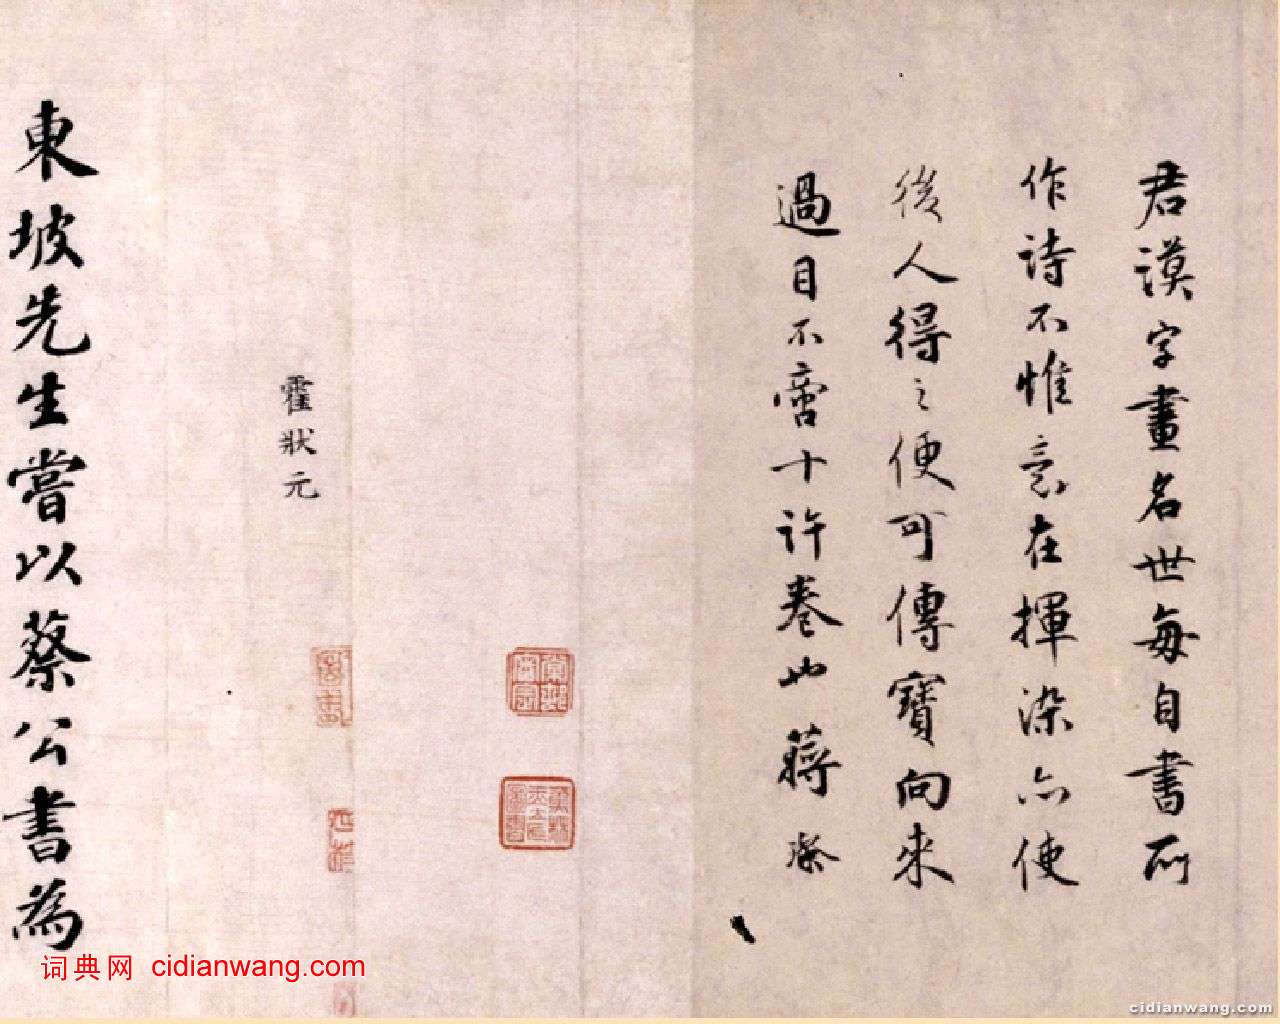 君謨字畫名世每自書所
作詩不惟意在揮染亦使
後人得之便可傳寶向來
過目不啻十許卷也蔣璨
霍狀元
東坡先生嘗以蔡公書為
词典网 cidianwang.com
cidianwang.com